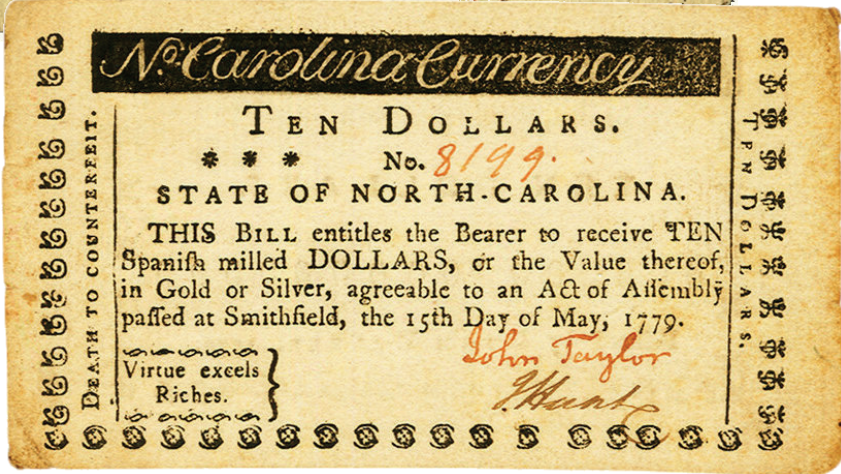 No. Carolina Currency
TEN DOLLARS.
* * * No. 8199.
STATE OF NORTH-CAROLINA.
THIS BILL entitles the Bearer to receive TEN
Spaniſh milled DOLLARS, or the Value thereof,
in Gold or Silver, agreeable to an Act of Aſſembly
paſſed at Smithfield, the 15th Day of May, 1779.
John Taylor
J. Hunt
Virtue excels
Riches.
DEATH TO COUNTERFEIT.
TEN DOLLARS.